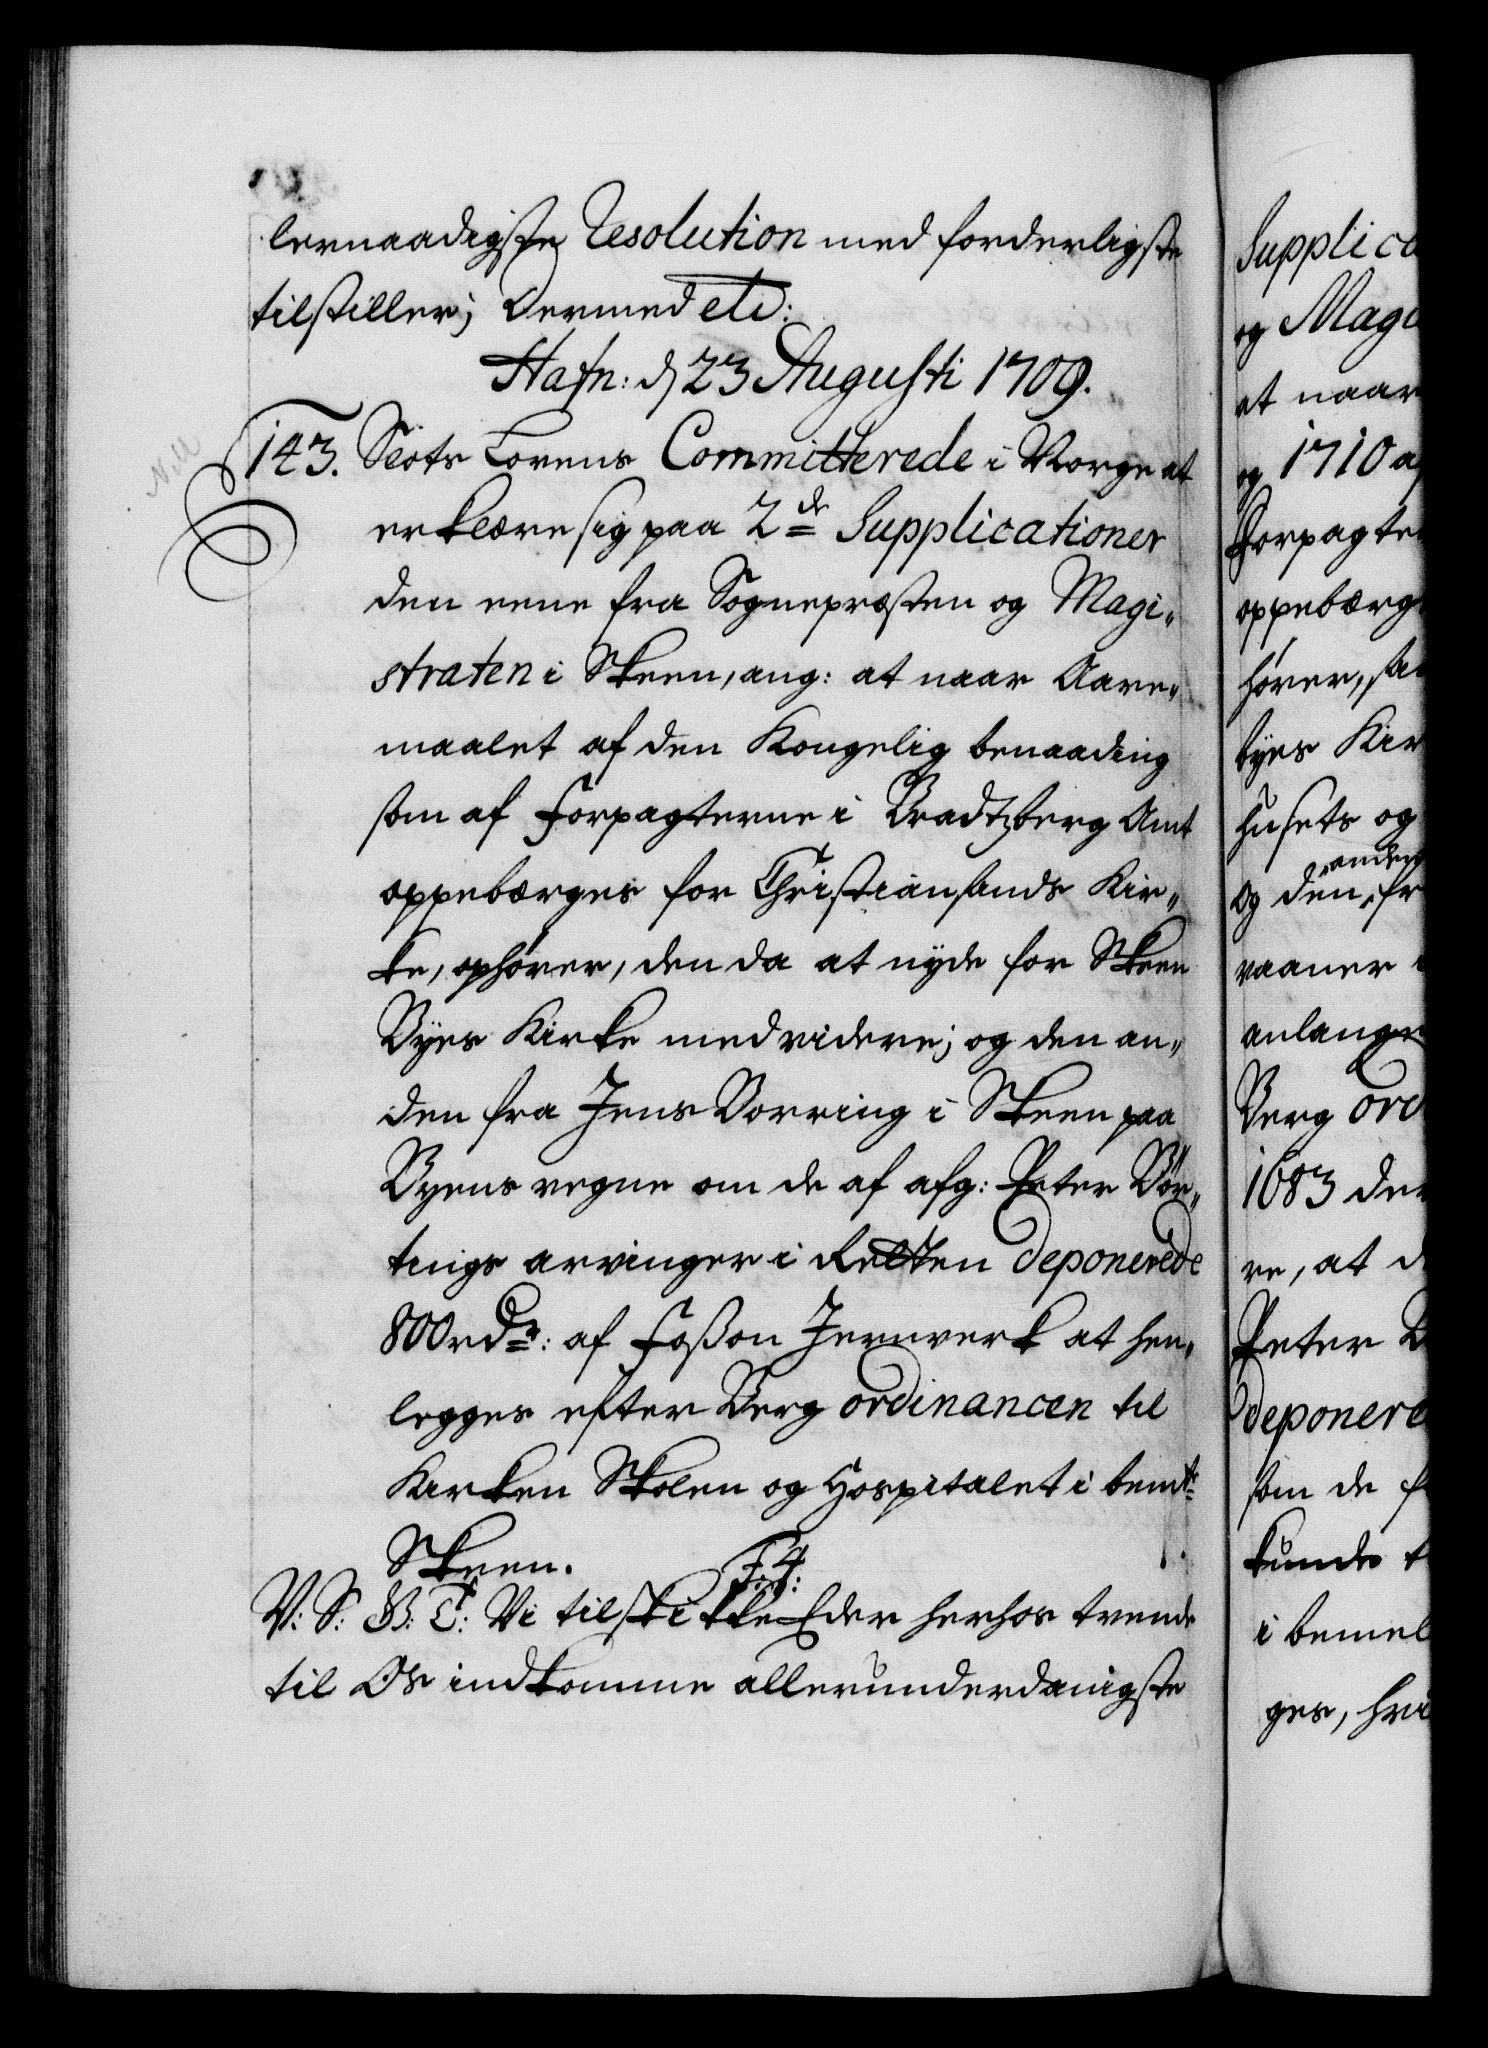 lernaadigste Resolution med forderligste
tilstiller; Dermed etc:
Hafn: d 23 Augusti 1709.
143. Slots Lovens Committerede i Norge at
erklære sig paa 2de Supplicationer
den eene fra Sognepræsten og Magi„
straten i Skeen, ang: at naar Aare„
maalet af den Kongelig benaading
som af Forpagterne i Bradtzberg Amt
oppebærges for Christiansands Kir„
ke, ophører, den da at nyde for Skeen
Byes Kirke med videre; og den an„
den fra Jens Borring i Skeen paa
Byens vegne om de af afg: Peter Bør„
tings arvinger i Retten deponerede
800 rdr: af Fosson Jernverk at hen„
legges efter Berg ordinancen til
Kirken Skolen og Hospitalet i bemte
Skeen.
F. 4:
V: S: G: T: Vi tilskikke Eder herhos trende
til Os indkomme allerunderdanigste
Supplica
og Mag
at naar
og 1710 a
Forpagte
oppebærg
hører, sa
byes Kir
Husets og
anden
og den fr
vaaner
anlange
Berg ord
1683 der
re, at d
Peter B
deponere
som de f
kunde t
i bemel
ges, hvi